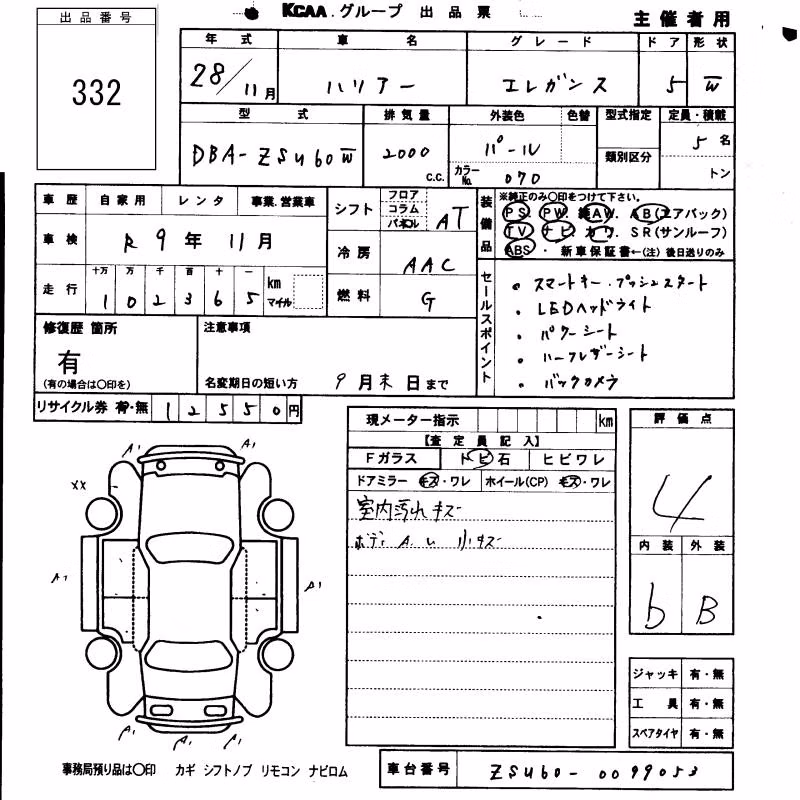 出品番号
332
KCAA.グループ 出品票
主催者用
年式 車名 グレード ドア 形状
28/11月 ハリアー エレガンス 5 W
型式 排気量 外装色 色替 型式指定 定員・積載
DBA-ZSU60W 2000 c.c. パール 5名
カラーNo. 070 類別区分 トン
車歴 自家用 レンタ 事業.営業車
車検 R9年11月
走行 十万 万 千 百 十 一 km マイル
1 0 2 3 6 5
シフト フロア コラム パネル AT
冷房 AAC
燃料 G
装備品
※純正のみ○印をつけて下さい。
PS. PW. 純AW. AB(エアバック)
TV ナビ カワ. SR(サンルーフ)
ABS ・新車保証書←(注)後日送りのみ
セールスポイント
・スマートキー.プッシュスタート
・LEDヘッドライト
・パワーシート
・ハーフレザーシート
・バックカメラ
修復歴 箇所
有
(有の場合は○印を)
注意事項
名変期日の短い方 9月末日まで
リサイクル券 有・無 12550円
現メーター指示 km
【査定員記入】
Fガラス トビ石 ヒビワレ
ドアミラー キズ・ワレ ホイール(CP) キズ・ワレ
室内汚れキズ
ボディ A. U 小キズ
評価点
4
内装 外装
b B
A1 A1
XX
A1 A1
A1 A1 A1
ジャッキ 有・無
工具 有・無
スペアタイヤ 有・無
事務局預り品は○印 カギ シフトノブ リモコン ナビロム
車台番号 ZSU60-0099053